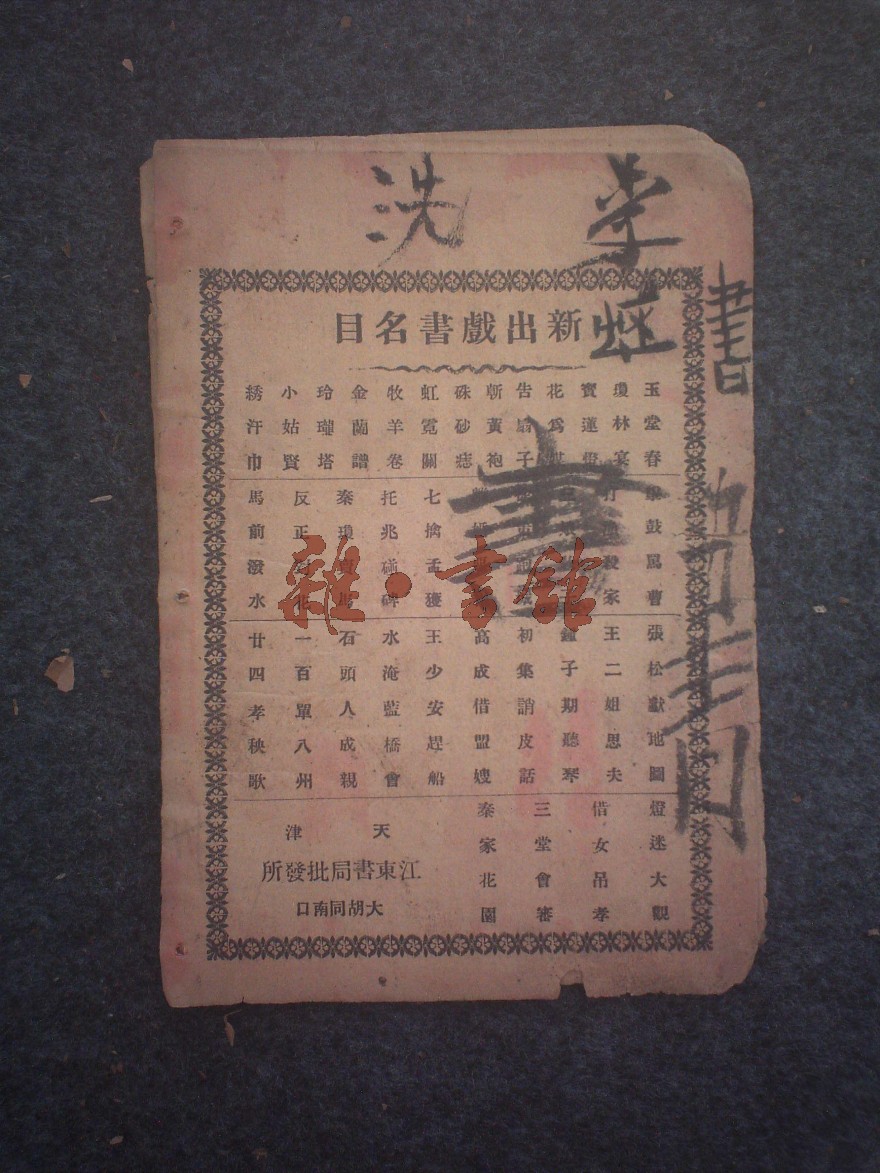 新出戲書名目
玉堂春
瓊林宴
寶蓮燈
花為媒
告扇子
斬黃袍
硃砂痣
虹霓關
牧羊卷
金蘭譜
玲瓏塔
小姑賢
綉汗巾
鼓罵曹
打 殺家
七擒孟獲
托兆碰碑
秦瓊 馬
反正 花
馬前潑水
張松獻地圖
王二姐思夫
鍾子期聽琴
初集誚皮話
高成借盟嫂
王少安趕船
水淹藍橋會
石頭人成親
一百單八州
廿四孝秧歌
燈迷大觀
借女吊孝
三堂會審
秦家花園
天津
江東書局批發所
大胡同南口
書
洗
書
雜·書館